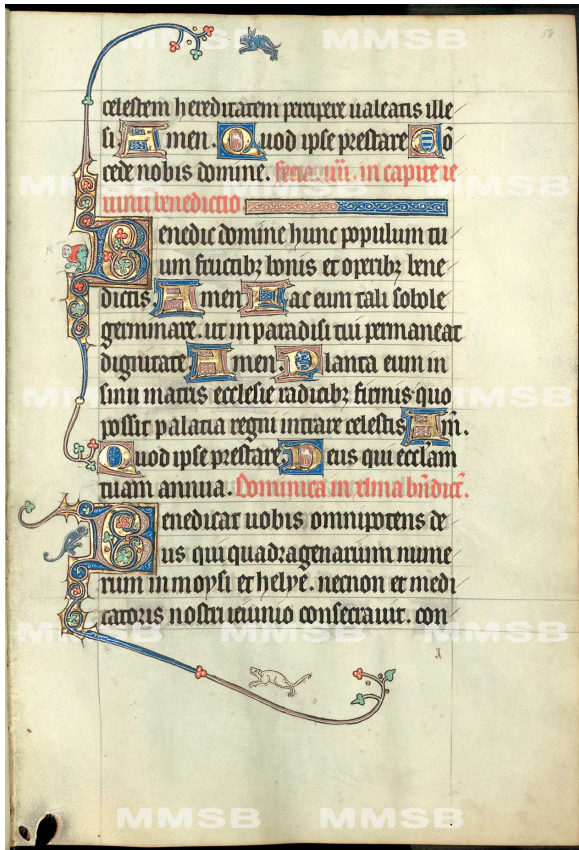 58
celestem hereditatem percipere ualeatis ille
si Amen. Quod ipse prestare Cō
cede nobis domine. feria. iiii. in capite ie
iunii benedictio
Benedic domine hunc populum tu
um fructibꝫ bonis et operibꝫ bene
dictis Amen Hac eum tali sobole
germinare. ut in paradisi tui permaneat
dignitate. Amen. Planta eum in
sinu matris ecclesie radicibꝫ firmis quo
possit palatia regni intrare celestis Am̄.
Quod ipse prestare. Deus qui eccl'am
tuam annua. Dominica in xlma bn̄dict'.
Benedicat uobis omnipotens de
us qui quadragenarium nume
rum in moysi et helye. necnon et medi
catoris nostri ieiunio consecrauit. con
MMSB